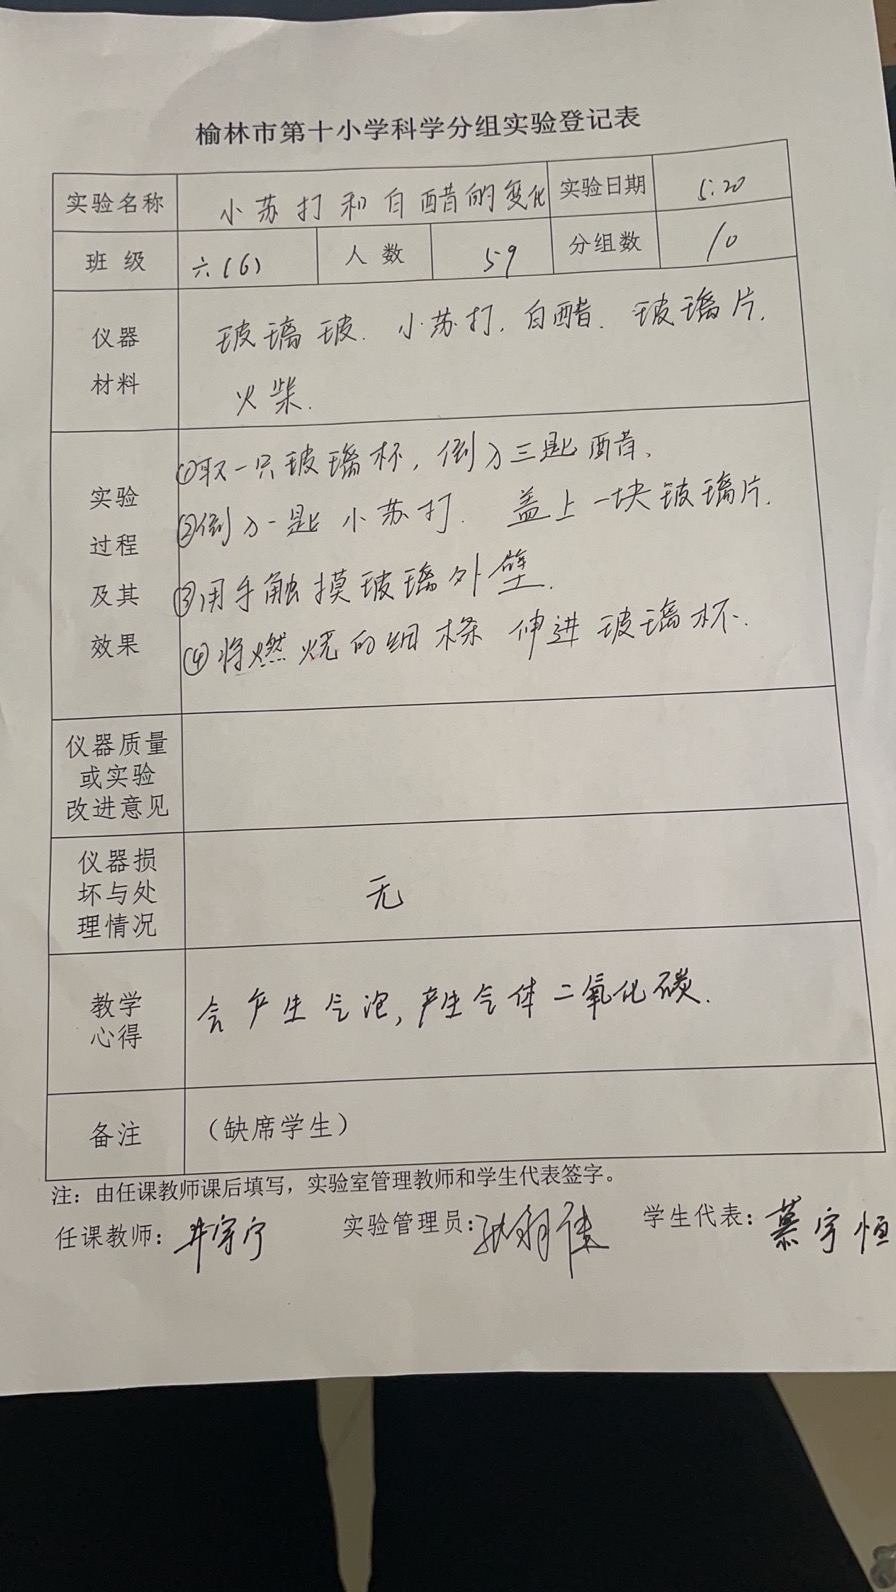 榆林市第十小学科学分组实验登记表
实验名称 小苏打和白醋的变化 实验日期 5.20
班 级 六(6) 人 数 59 分组数 10
仪器
材料
玻璃玻. 小苏打. 白醋. 玻璃片.
火柴.
实验
过程
及其
效果
①取一只玻璃杯, 倒入三匙醋.
②倒入一匙小苏打. 盖上一块玻璃片.
③用手触摸玻璃外壁.
④将燃烧的细条伸进玻璃杯.
仪器质量
或实验
改进意见
仪器损
坏与处
理情况
无
教学
心得
会产生气泡, 产生气体二氧化碳.
备注 (缺席学生)
注: 由任课教师课后填写, 实验室管理教师和学生代表签字。
任课教师: 实验管理员: 学生代表: 慕宇恒